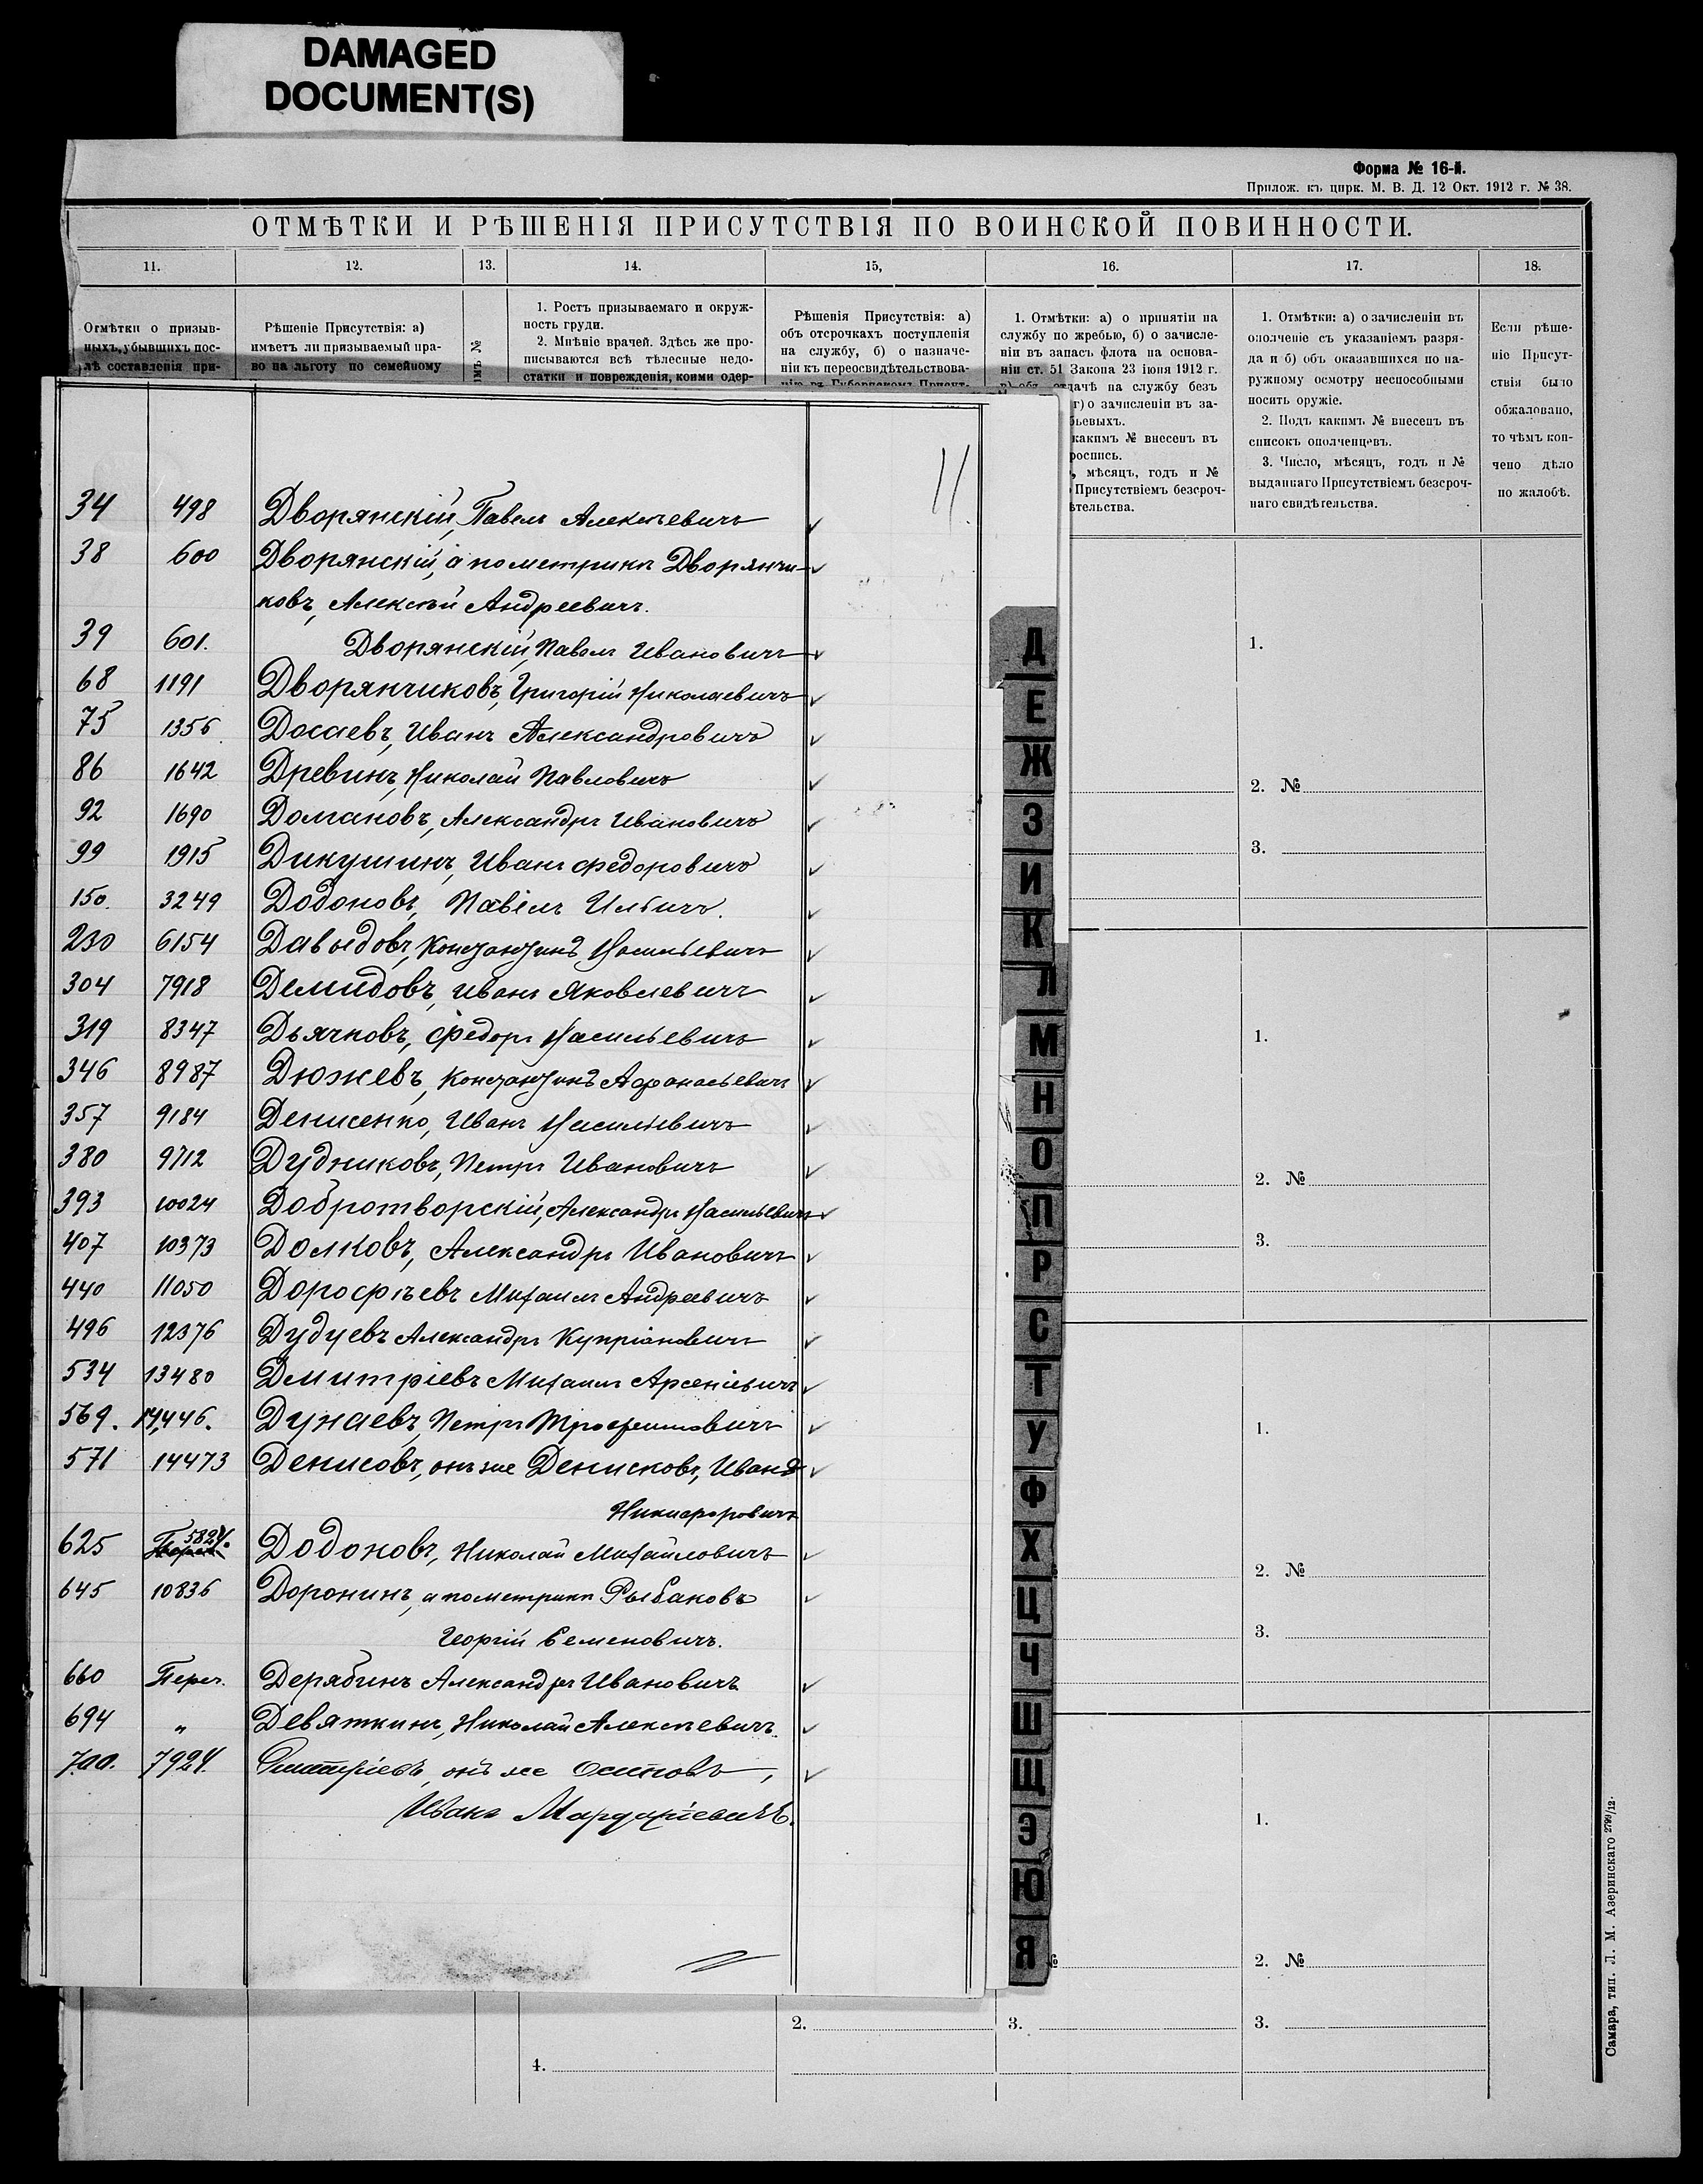 DAMAGED
DOCUMENT(S)
Форма № 16-й.
Прилож. къ цирк. М. В. Д. 12 Окт. 1912 г. № 38.
ОТМѢТКИ И РѢШЕНІЯ ПРИСУТСТВІЯ ПО ВОИНСКОЙ ПОВИННОСТИ.
11. 12. 13. 14. 15, 16. 17. 18.
Отмѣтки о призыв-
ныхъ, убывшихъ пос-
лѣ составленія при-
Рѣшеніе Присутствія: а)
имѣетъ ли призываемый пра-
во на льготу по семейному
1. Ростъ призываемаго и окруж-
ность груди.
2. Мнѣніе врачей. Здѣсь же про-
писываются всѣ тѣлесные недо-
статки и поврежденія, коими одер-
Рѣшенія Присутствія: а)
объ отсрочкахъ поступленія
на службу, б) о назначе-
ніи къ переосвидѣтельствова-
нію въ Губернскомъ Присут-
1. Отмѣтки: а) о принятіи на
службу по жребью, б) о зачисле-
ніи въ запасъ флота на основа-
ніи ст. 51 Закона 23 іюня 1912 г.
в) объ отдачѣ на службу безъ
г) о зачисленіи въ за-
бьевыхъ.
какимъ № внесенъ въ
роспись.
мѣсяцъ, годъ и №
Присутствіемъ безсроч-
ѣтельства.
1. Отмѣтки: а) о зачисленіи въ
ополченіе съ указаніемъ разря-
да и б) объ оказавшихся по на-
ружному осмотру неспособными
носить оружіе.
2. Подъ какимъ № внесенъ въ
списокъ ополченцевъ.
3. Число, мѣсяцъ, годъ и №
выданнаго Присутствіемъ безсроч-
наго свидѣтельства.
Если рѣше-
ніе Присут-
ствія было
обжаловано,
то чѣмъ кон-
чено дѣло
по жалобѣ.
11.
34 498 Дворянскій, Павелъ Алексѣевичъ
38 600 Дворянскій, а по метрикѣ Дворянчи-
ковъ, Алексѣй Андреевичъ.
39 601. Дворянскій, Павелъ Ивановичъ
68 1191 Дворянчиковъ, Григорій Николаевичъ
75 1356 Досаевъ, Иванъ Александровичъ
86 1642 Древинъ, Николай Павловичъ
92 1690 Домановъ, Александръ Ивановичъ
99 1915 Дикушинъ, Иванъ Федоровичъ
150. 3249 Додоновъ, Павелъ Ильичъ.
230 6154 Давыдовъ, Константинъ Васильевичъ
304 7918 Демидовъ, Иванъ Яковлевичъ
319 8347 Дьячковъ, Федоръ Васильевичъ
346 8987 Дюжевъ, Константинъ Афанасьевичъ
357 9184 Денисенко, Иванъ Васильевичъ
380 9712 Дудниковъ, Петръ Ивановичъ
393 10024 Добротворскій, Александръ Васильевичъ
407 10373 Долковъ, Александръ Ивановичъ
440 11050 Дорофѣевъ Михаилъ Андреевичъ
496 12376 Дудуевъ Александръ Купріановичъ
534 13480 Дмитріевъ Михаилъ Арсеніевичъ
569. 14,446. Дунаевъ, Петръ Трофимовичъ
571 14473 Денисовъ, онъ же Денисковъ, Иванъ
Никифоровичъ
625 5824. Додоновъ, Николай Михайловичъ
645 10836 Доронинъ, а по метрикѣ Рыбаковъ
Георгій Семеновичъ.
660 Переч. Дерябинъ Александръ Ивановичъ
694 " Девяткинъ, Николай Алексѣевичъ.
700. 7924. Дмитріевъ, онъ же Осиповъ,
Иванъ Мардаріевичъ.
Д
Е
Ж
З
И
К
Л
М
Н
О
П
Р
С
Т
У
Ф
Х
Ц
Ч
Ш
Щ
Э
Ю
Я
1.
2. №
3.
1.
2. №
3.
1.
2. №
3.
1.
2. №
2. 3. 3.
4.
Самара, тип. Л. М. Азеринскаго 2799/12.